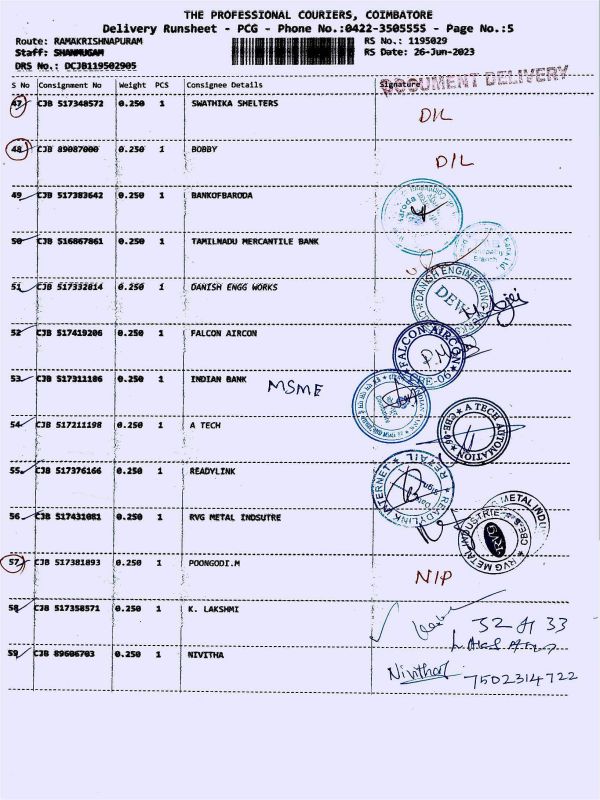 THE PROFESSIONAL COURIERS, COIMBATORE
Delivery Runsheet - PCG - Phone No.:0422-3505555 - Page No.:5
Route: RAMAKRISHNAPURAM RS No.: 1195029
Staff: SHANMUGAM RS Date: 26-Jun-2023
DRS No.: DCJB119502905
DOCUMENT DELIVERY
S No Consignment No Weight PCS Consignee Details Signature
47 CJB 517348572 0.250 1 SWATHIKA SHELTERS D/L
48 CJB 89087000 0.250 1 BOBBY D/L
49 CJB 517383642 0.250 1 BANKOFBARODA
50 CJB 516867861 0.250 1 TAMILNADU MERCANTILE BANK
51 CJB 517332814 0.250 1 DANISH ENGG WORKS DANISH ENGINEERING DEW
52 CJB 517419206 0.250 1 FALCON AIRCON FALCON AIRCON CBE-06
53 CJB 517311186 0.250 1 INDIAN BANK MSME
54 CJB 517211198 0.250 1 A TECH A TECH AUTOMATION CBE-06
55 CJB 517376166 0.250 1 READYLINK READYLINK INTERNET RETAIL
56 CJB 517431081 0.250 1 RVG METAL INDSUTRE RVG METAL INDUSTRIE RVG
57 CJB 517381893 0.250 1 POONGODI.M N/P
58 CJB 517358571 0.250 1 K. LAKSHMI
59 CJB 89606703 0.250 1 NIVITHA Nivitha
7502314722